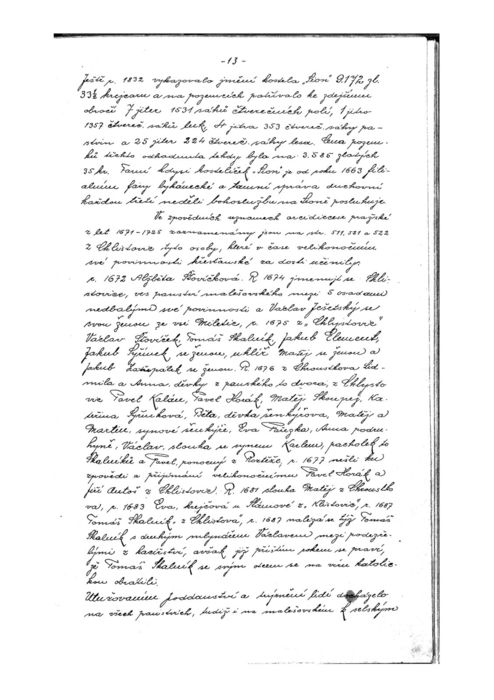 -13-
Ještě r. 1832 vykazovalo jmění kostela „Sion" 9.172 zl.
33½ krejcaru a na pozemcích patřívalo ke zdejšímu
obročí 7 jiter 1531 sáhů čtverečních polí, 1 jitro
1357 čtvereč. sáhů luk, 4 jitra 353 čtvereč. sáhy pa-
stvin a 25 jiter 224 čtvereč. sáhy lesa. Cena pozem-
ků těchto odhadnuta tehdy byla na 3.585 zlatých
35 kr. Farní kdysi kostelíček „Sion" je od roku 1663 fili-
álním fary bykánecké a tamní správa duchovní
každou třetí neděli bohoslužbu na Sioně posluhuje.
Ve zpovědních seznamech arcidiecese pražské
z let 1671-1725 zaznamenány jsou na str. 511, 521 a 522
z Chlístovic tyto osoby, které v čase velikonočním
své povinnosti křesťanské za dosti učinily:
r. 1672 Alžběta Slovíčková. R. 1674 jmenují se Chli-
stovice, ves panství malešovského mezi 5 osadami
nedbalými své povinnosti a Václav Ješetský se
svou ženou ze vsi Miletic, r. 1675 z „Chlystovic"
Václav Slovíček, Tomáš Skalník, Jakub Clement,
Jakub se ženou, uhlíř Matěj se ženou a
Jakub se ženou. R. 1676 z Chroustkova Lid-
mila a Anna, děvky z panského to dvora, z Chlysto-
vic Pavel Kalán, Pavel Horák, Matěj Ka-
teřina děvka šenkýřova, Matěj a
Martin, synové šenkýře, Eva Anna podru-
hyně, Václav, slouha se synem Karlem, pacholek to
Skalníkův a Pavel, ponocný z r. 1677 nešli ku
zpovědi a přijímání velikonočnímu Pavel Horák a
Jiří Antoš z Chlistovic. R. 1681 slouha Matěj z Chroustko-
va, r. 1683 Eva, krejčová a z r. 1687
Tomáš Skalník, z Chlístova, r. 1687 nalezá se týž Tomáš
Skalník s druhým mlynářem Václavem mezi podezře-
lými z kacířství, avšak již příštím rokem se praví,
že Tomáš Skalník se svým otcem se na víru katolic-
kou obrátili.
Utužováním poddanství a týmě lidí docházelo
na všech panstvích, tudíž i na malešovském k selským